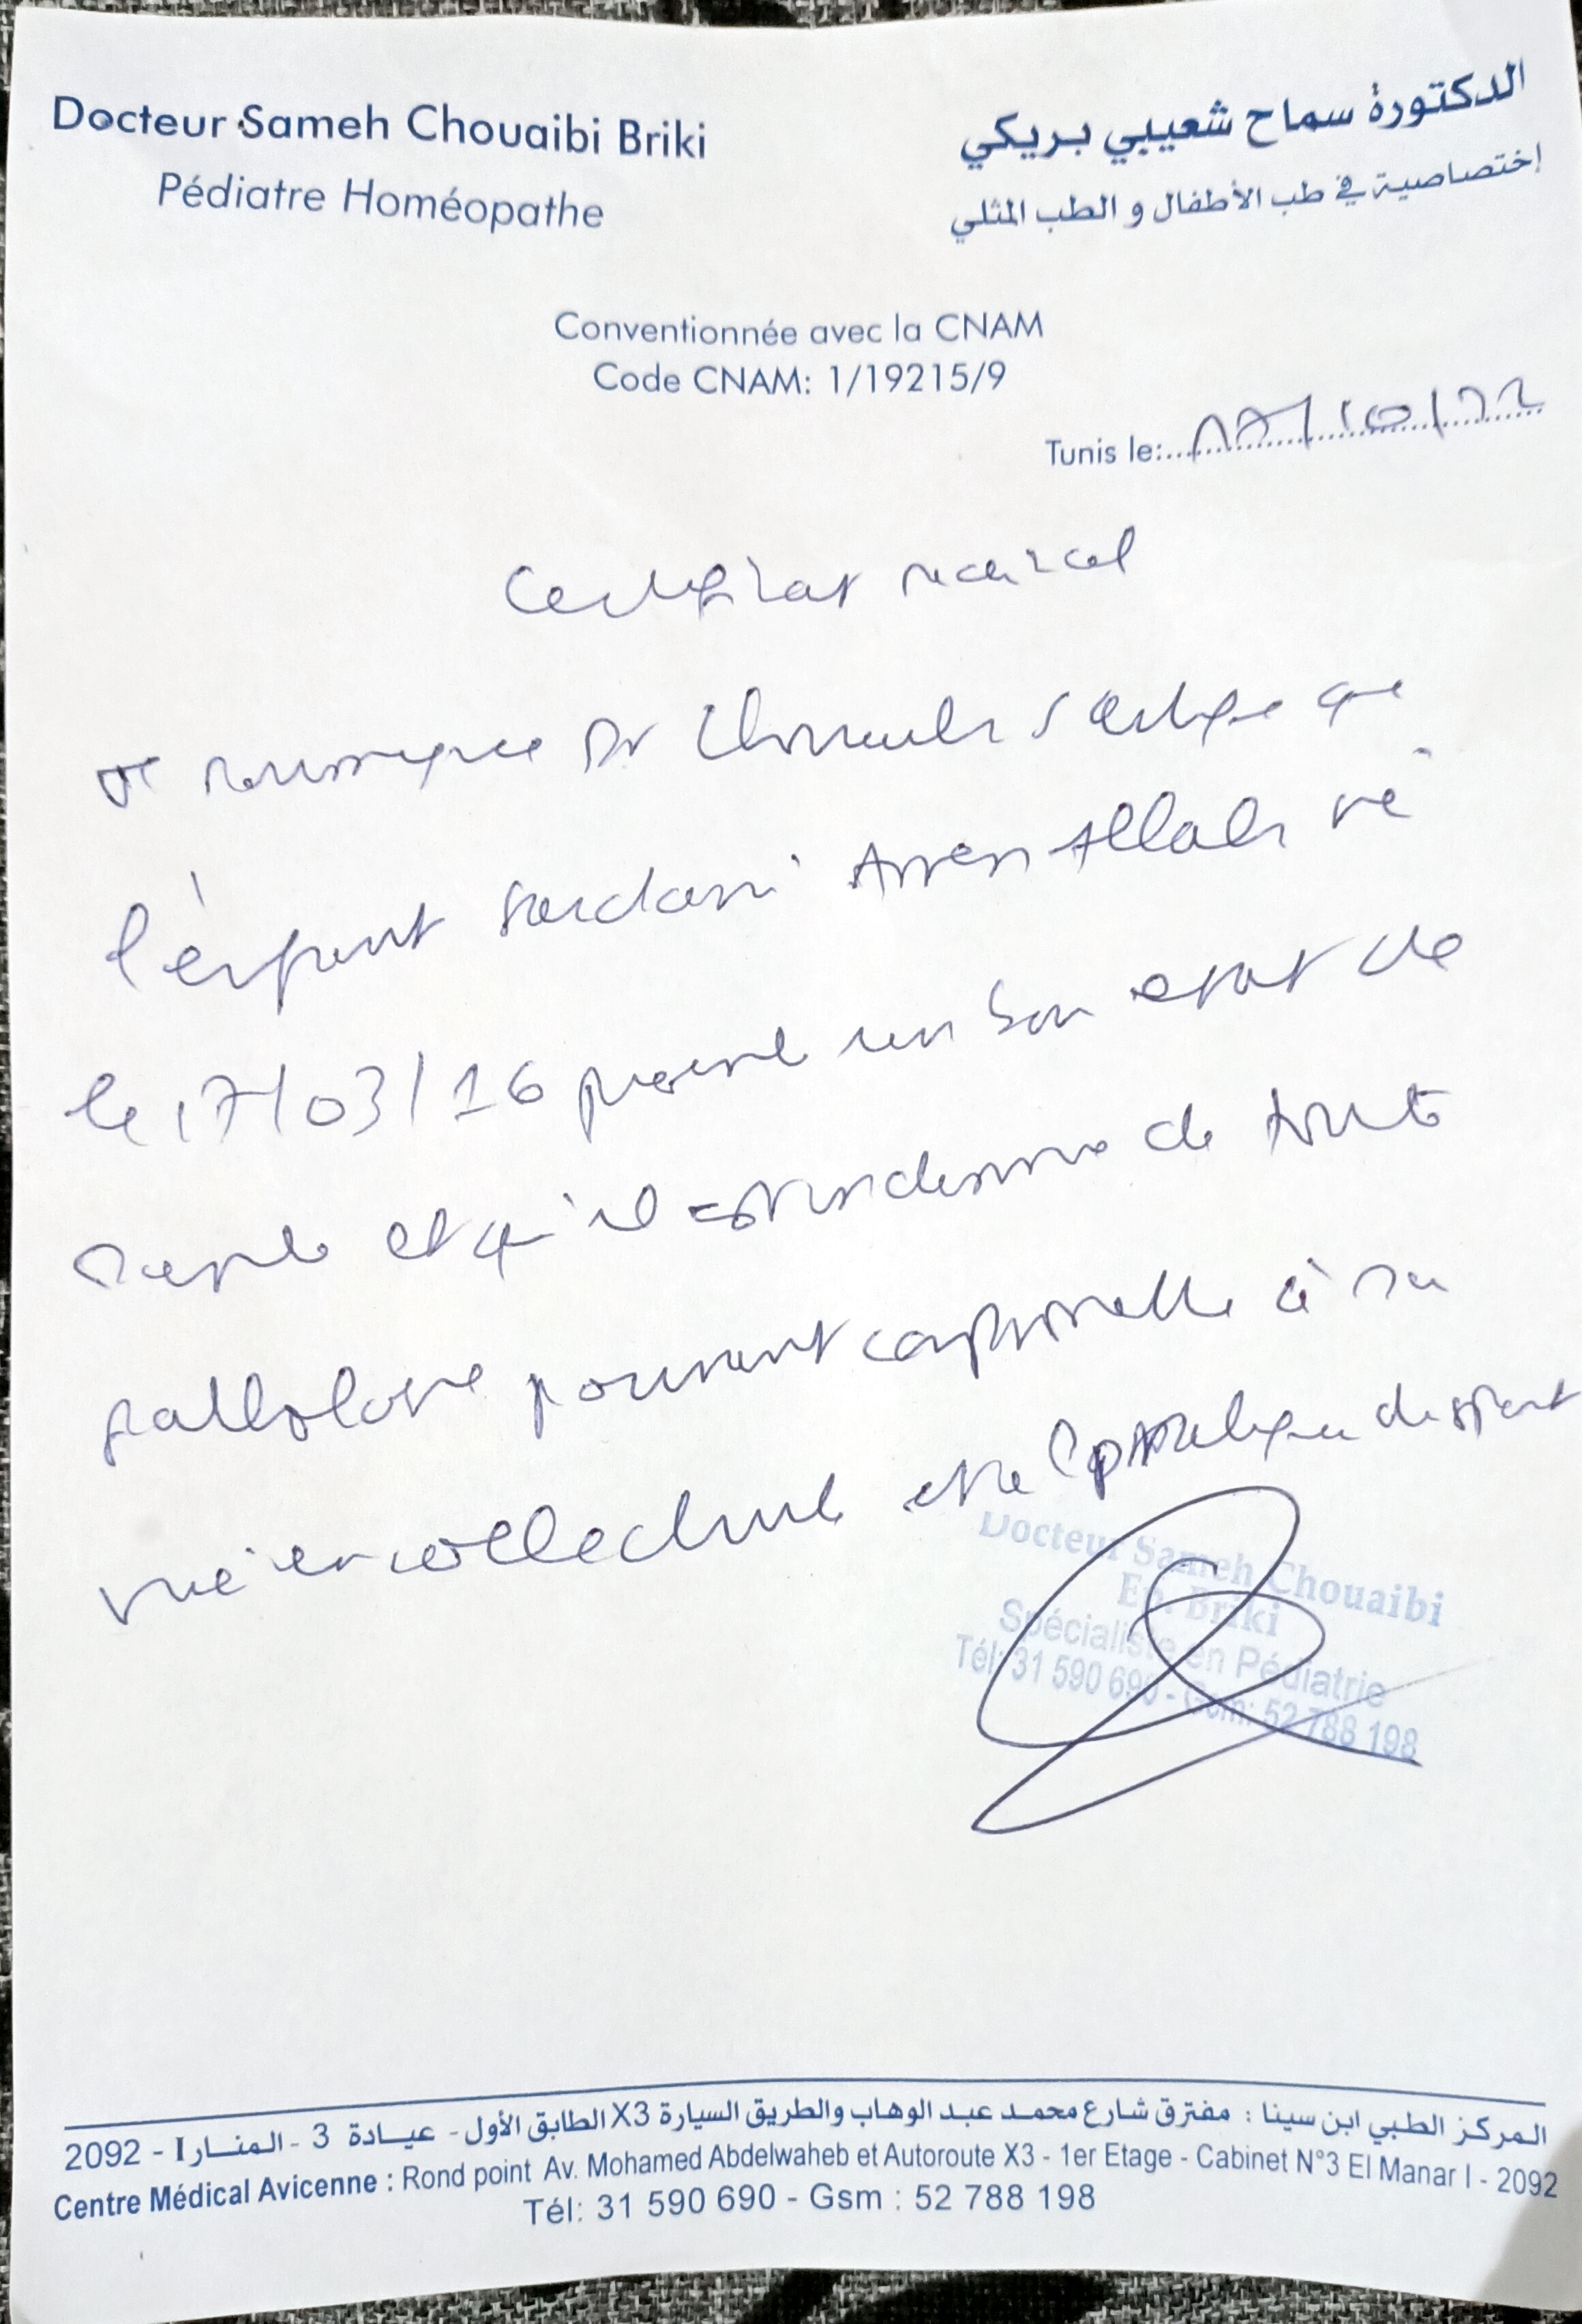 Docteur Sameh Chouaibi Briki
Pédiatre Homéopathe
الدكتورة سماح شعيبي بريكي
إختصاصية في طب الأطفال و الطب المثلي
Conventionnée avec la CNAM
Code CNAM: 1/19215/9
Tunis le: 17/10/22
Certificat medical
Je soussignée Dr Chouaibi S certifie que
l'enfant Allah né
le 17/03/16 présente un bon etat de
santé et qu'il est indemne de toute
pathologie pouvant à sa
vie en collectivité et la pratique de sport
Docteur Sameh Chouaibi
Ep. Briki
Spécialiste en Pédiatrie
Tél: 31 590 690 - Gsm: 52 788 198
المركز الطبي ابن سينا : مفترق شارع محمد عبد الوهاب والطريق السيارة X3 الطابق الأول - عيادة 3 - المنار I - 2092
Centre Médical Avicenne : Rond point Av. Mohamed Abdelwaheb et Autoroute X3 - 1er Etage - Cabinet N°3 El Manar I - 2092
Tél: 31 590 690 - Gsm : 52 788 198